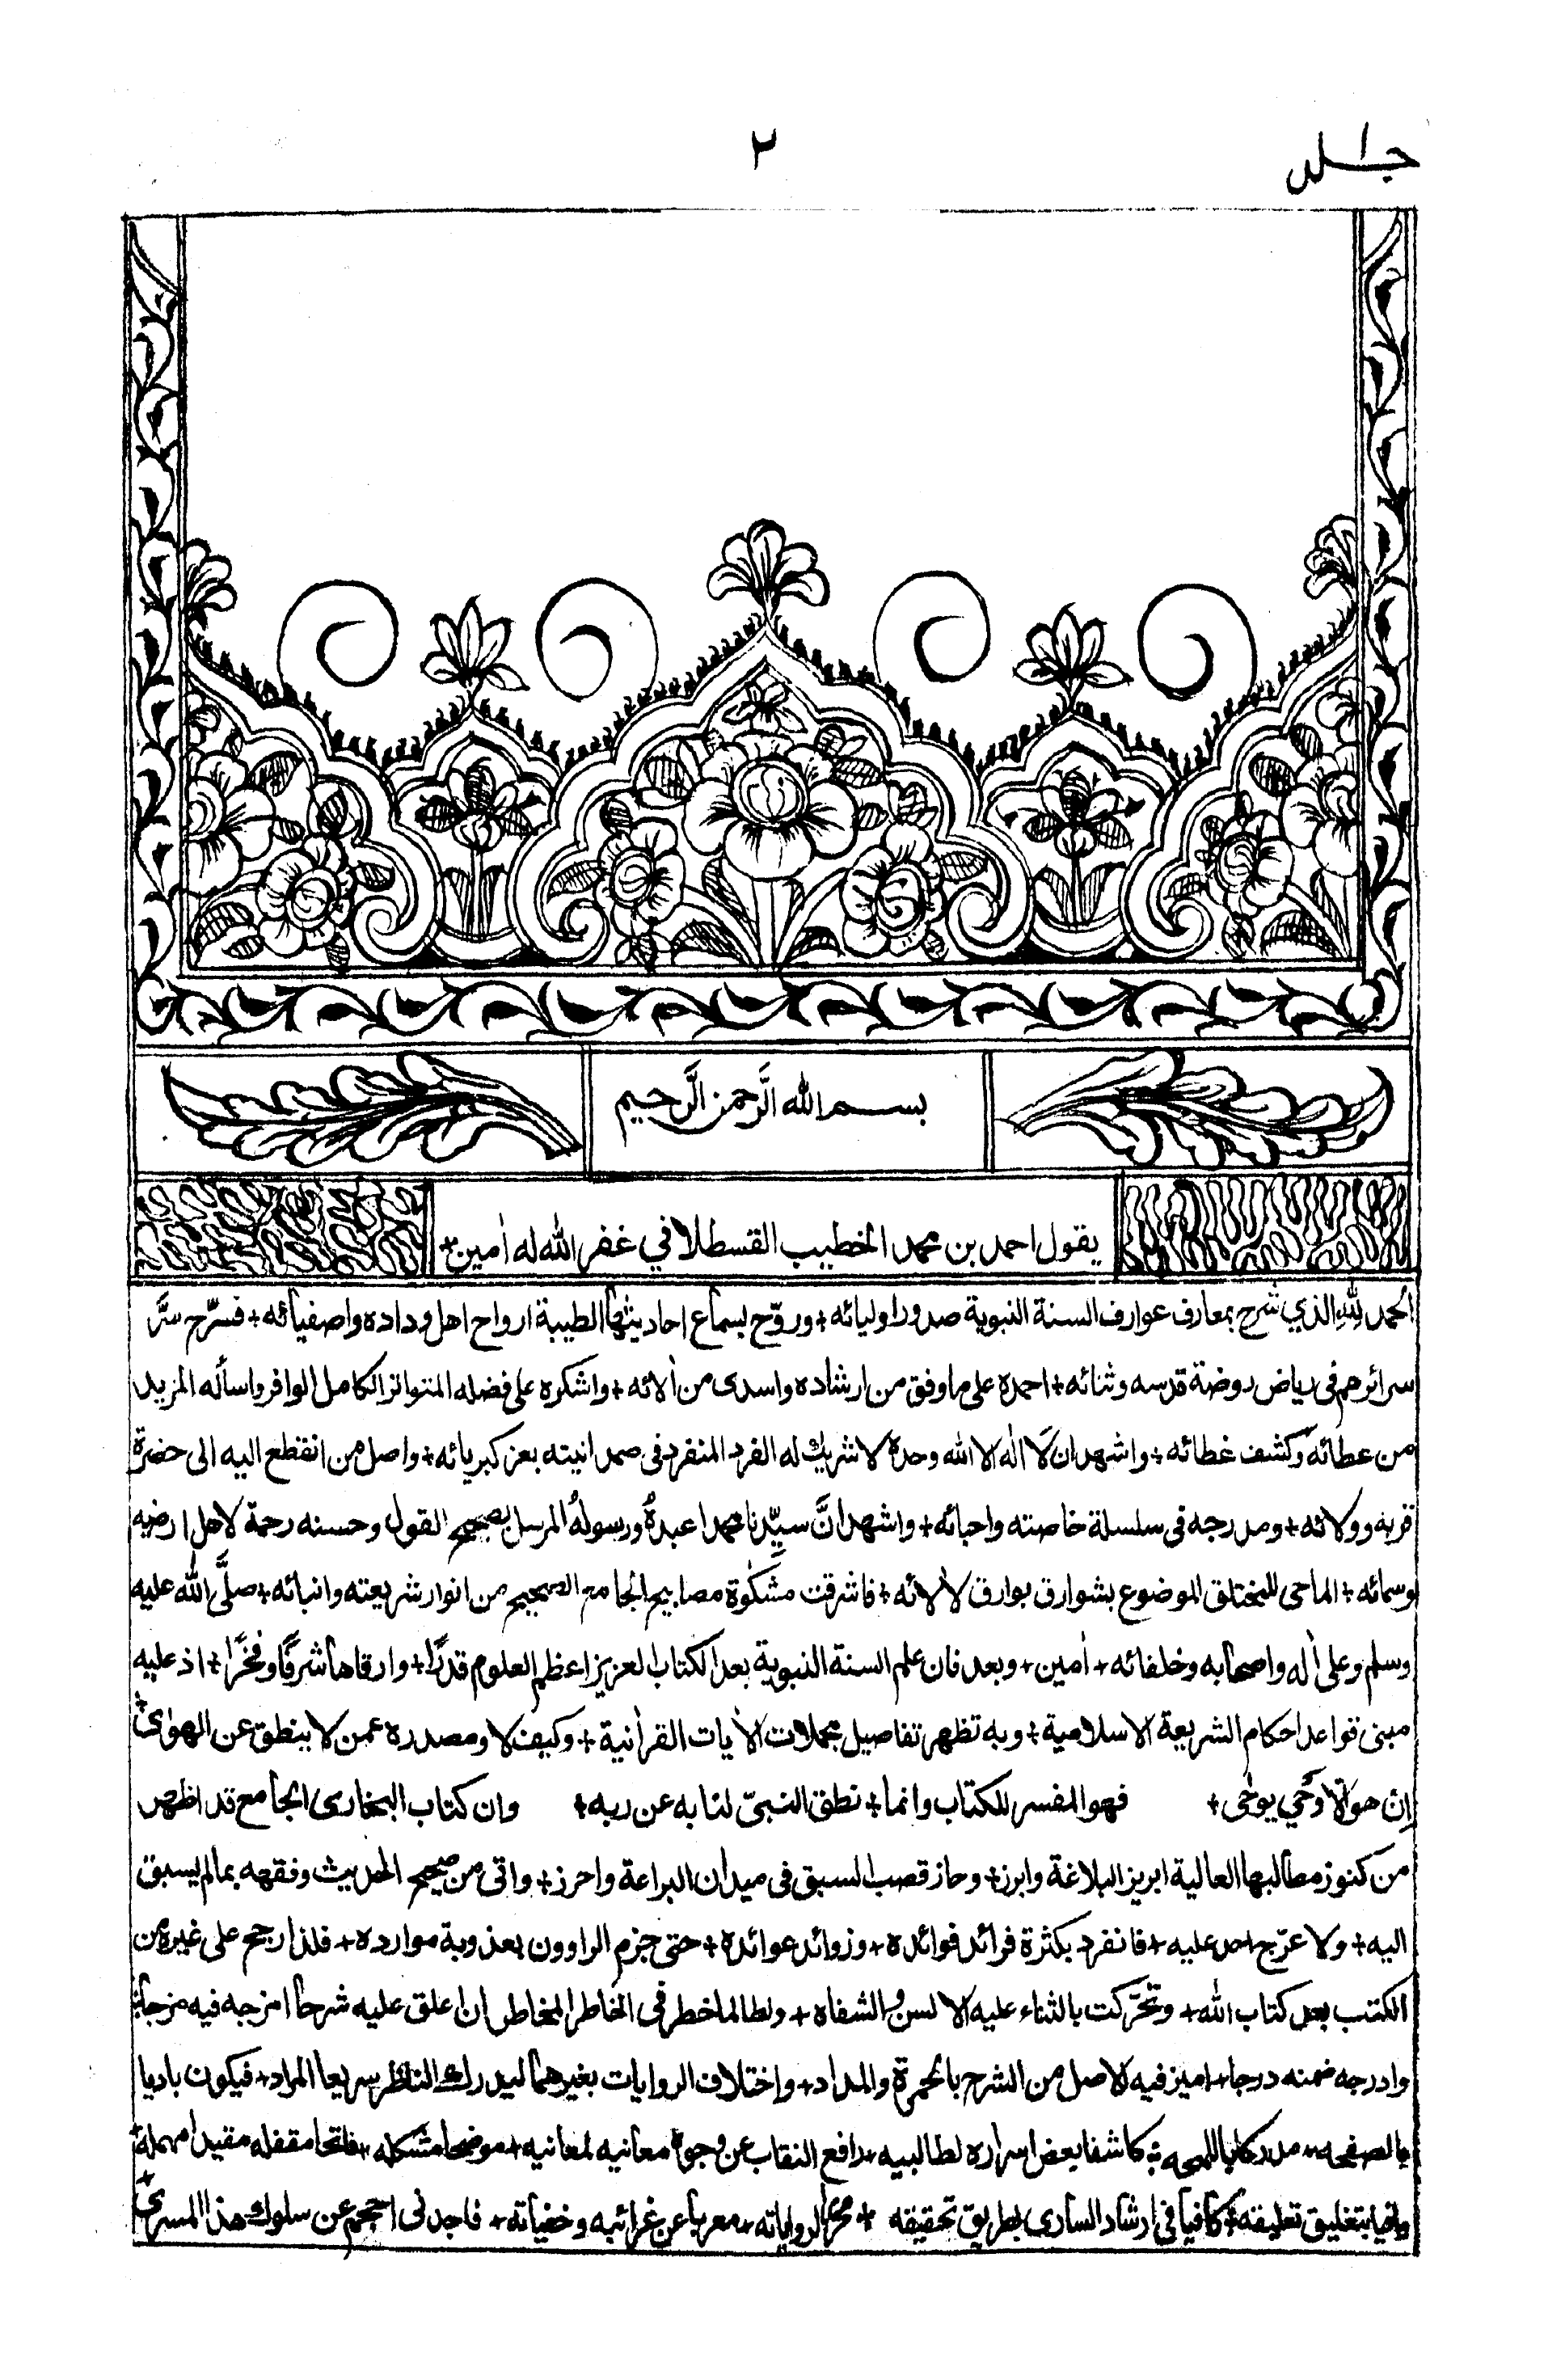 جلد ١
٢
بسم الله الرَّحمن الرَّحيم
يقول احمد بن محمد الخطيب القسطلاني غفر الله له اٰمين+
الحمد لِلّٰهِ الذي شرح بمعارف عوارف السنة النبوية صدور اوليائه+ وروّح بسماع احاديثها الطيبة ارواح اهل وداده واصفيائه+ فسرّح سرَّ
سرائرهم فى رياض روضة قدسه وثنائه+ احمده على ما وفق من ارشاده واسدى من اٰلائه+ واشكره على فضله المتواتر الكامل الوافر واسأله المزيد
من عطائه وكشف غطائه+ واشهد ان لَا اله الا الله وحده لا شريك له الفرد المنفرد فى صمدانيته بعز كبريائه+ واصل من انقطع اليه الى حضرة
قربه وولائه+ ومدرجه فى سلسلة خاصته واحبائه+ واشهد انَّ سيّدنا محمدا عبدهُ ورسولهُ المرسل بصحيح القول وحسنه رحمة لاهل ارضه
وسمائه+ الماحى للمختلق الموضوع بشوارق بوارق لألائه+ فاشرقت مشكٰوة مصابيح الجامع الصحيح من انوار شريعته وانبائه+ صلَّى اللّٰه عليه
وسلم وعلى اٰله واصحابه وخلفائه+ اٰمين+ وبعد فان علم السنة النبوية بعد الكتاب العزيز اعظم العلوم قدرًا+ وارقاها شرفًا وفخرًا+ اذ عليه
مبنى قواعد احكام الشريعة الاسلامية+ وبه تظهر تفاصيل مجملات الاٰيات القراٰنية+ وكيف لا ومصدره عمن لا ينطق عن الهوىٰ+
اِن هو اِلا وَحْي يوحٰى+ فهو المفسر للكتاب وانما+ نطق النبىّ لنا به عن ربه+ وان كتاب البخارى الجامع قد اظهر
من كنوز مطالبها العالية ابريز البلاغة وابرز+ وحاز قصب السبق فى ميدان البراعة واحرز+ واتى من صحيح الحديث وفقهه بما لم يسبق
اليه+ ولا عرّج احد عليه+ فانفرد بكثرة فرائد فوائده+ وزوائد عوائده+ حتى جزم الراوون بعذوبة موارده+ فلذا رجح على غيره من
الكتب بعد كتاب الله+ وتحرّكت بالثناء عليه الالسن والشفاه+ ولطالما خطر فى الخاطر المخاطر ان اعلق عليه شرحا امزجه فيه مزجا+
وادرجه ضمنه درجا+ اميز فيه الاصل من الشرح بالحمرة والمداد+ واختلاف الروايات بغيرهما ليدرك الناظر سريعا المراد+ فيكون باديا
بالصفحه+ مدركا باللمحه+ كاشفا بعض اسراره لطالبيه+ رافع النقاب عن وجوه معانيه لمعانيه+ موضحا مشكله+ فاتحا مقفله مقيدا مهمله+
وافيا بتغليق تعليقه+ كافيا فى ارشاد السارى لطريق تحقيقه+ محررا لرواياته+ معربا عن غرائبه وخفياته+ فاجدنى احجم عن سلوك هذا المسرى+